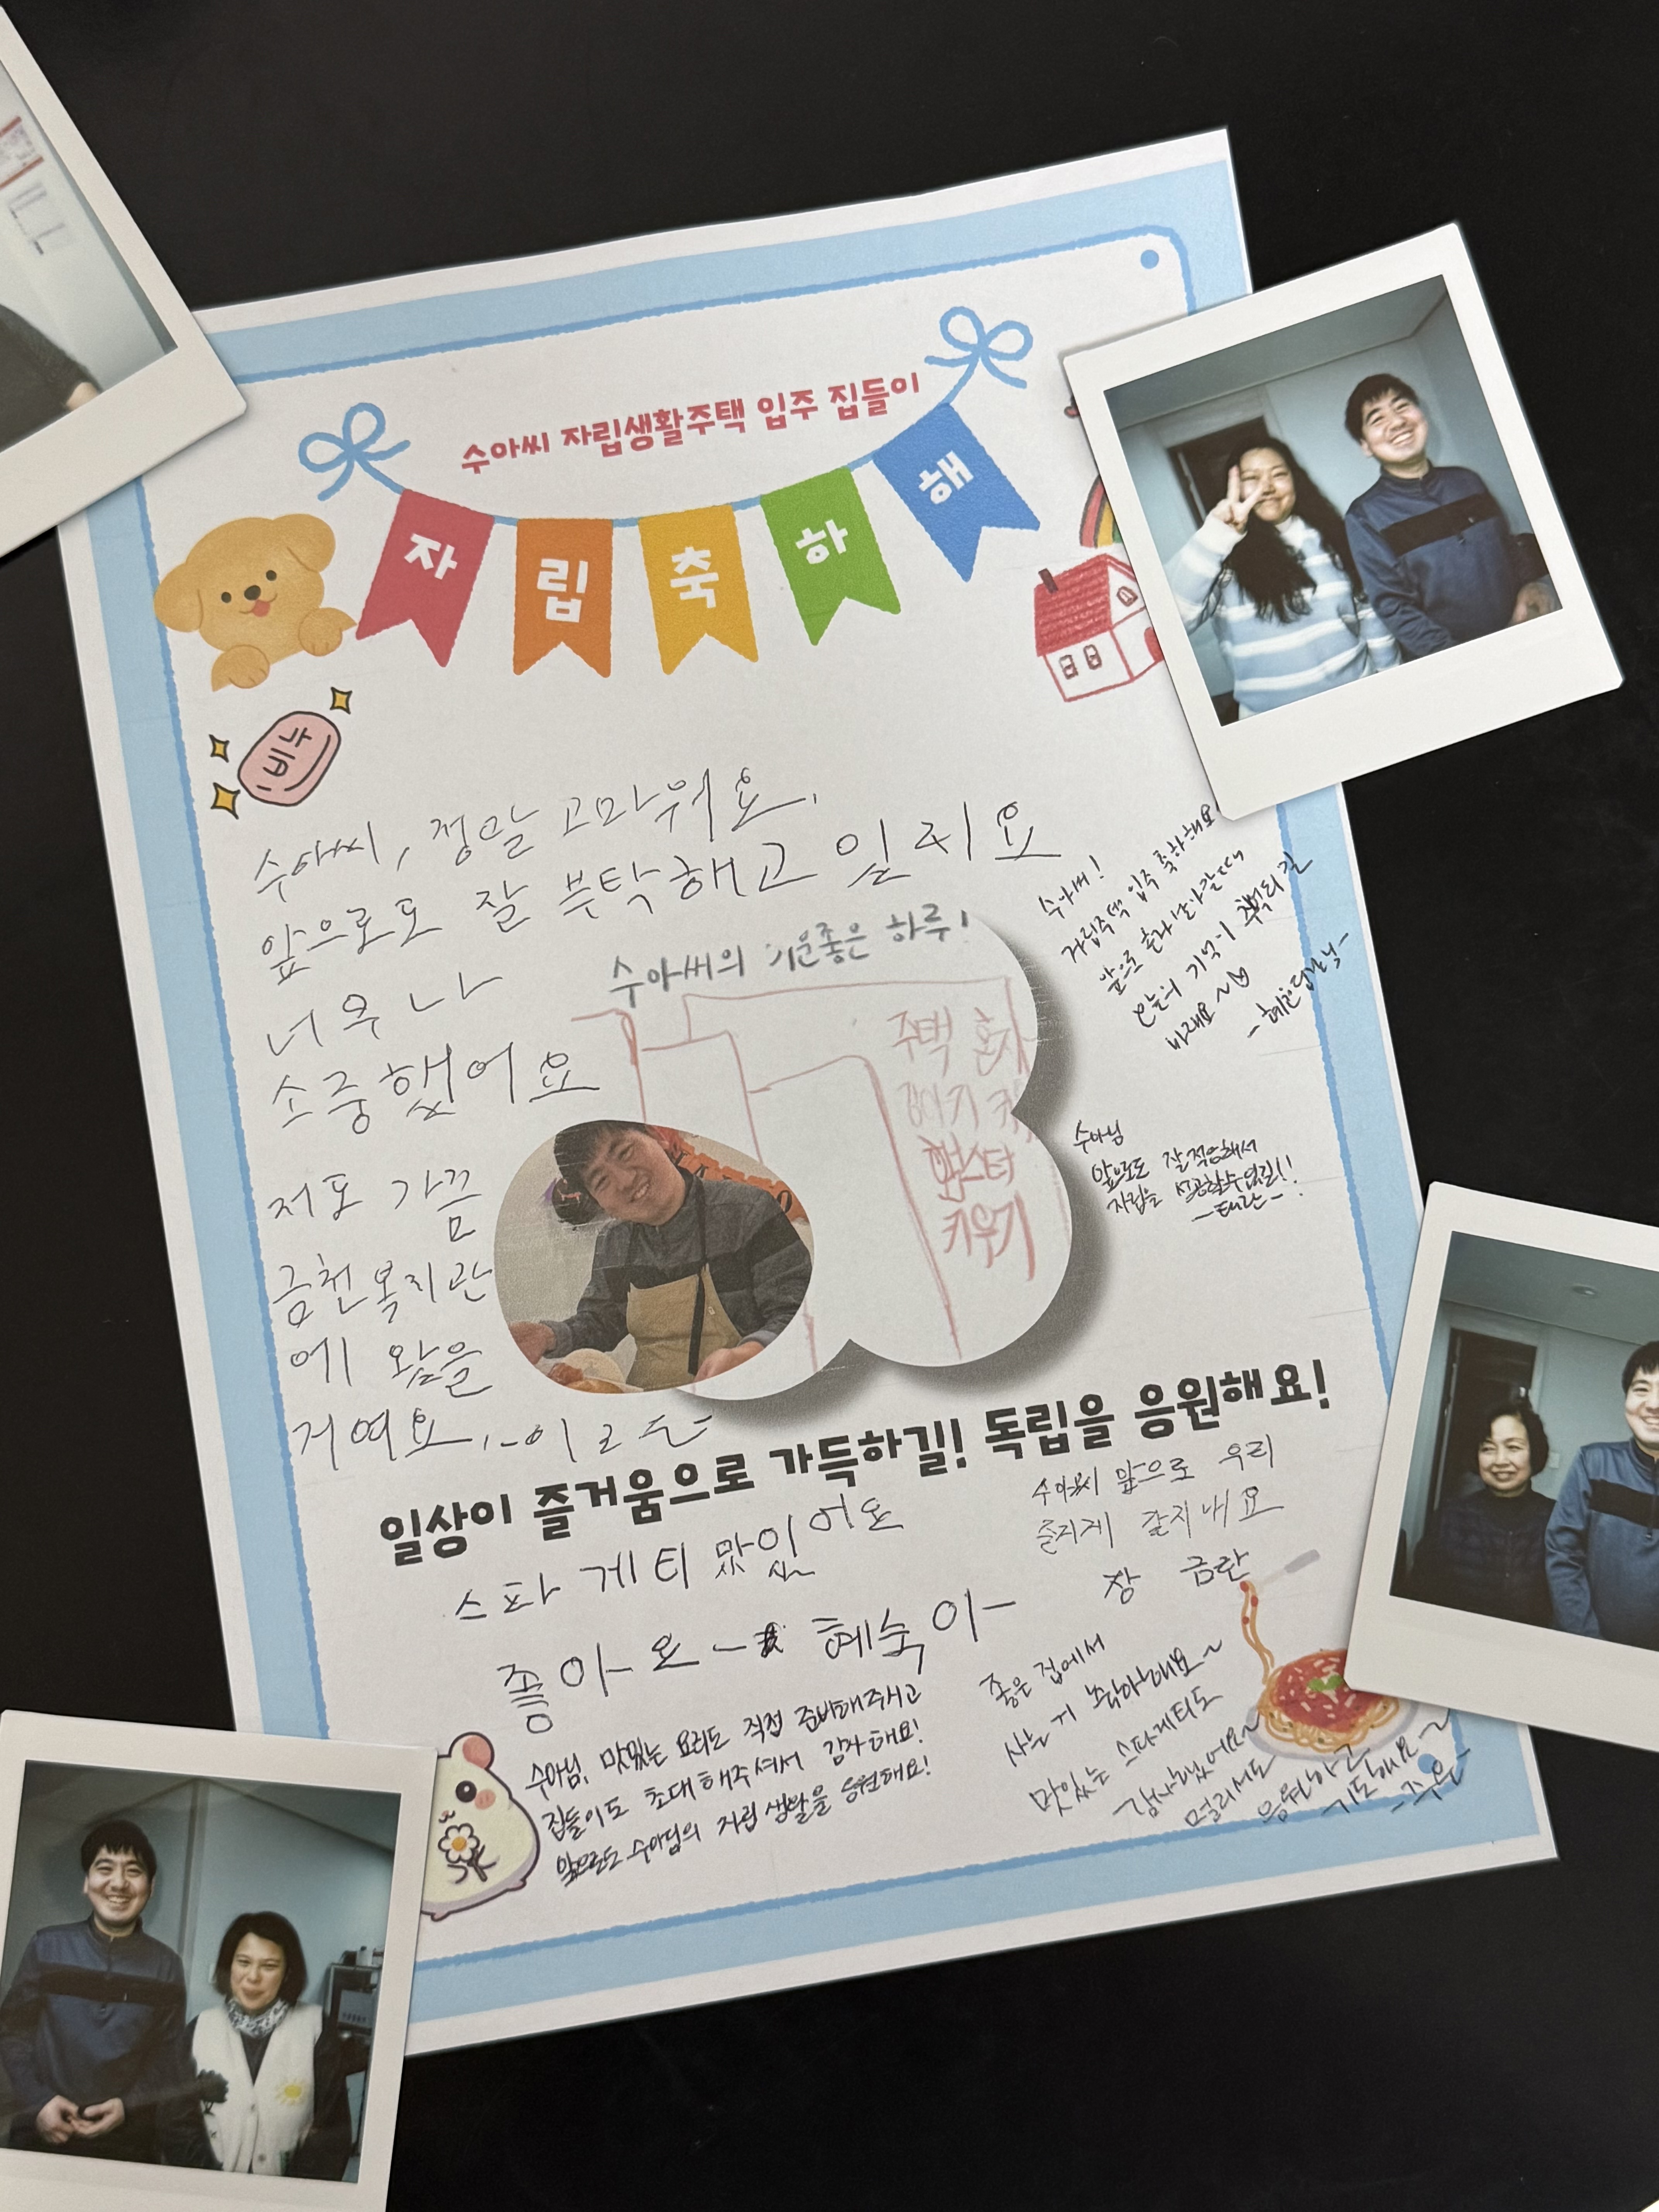 수아씨 자립생활주택 입주 집들이
자립축하해
나비
수아씨, 정말 고마워요.
앞으로도 잘 부탁해고 있레요
너무 나
소중했어요
저도 가끔
금천복지관
에 왔을
거여요.
수아씨의 기운좋은 하루!
주택 혼자
햄스터
키우기
수아씨!
자립주택 입주 축하해요!
앞으로 혼자 살아갈 때
오늘의 기억이 추억되길
바래요~♡
수아님
앞으로도 잘 적응해서
자립을
일상이 즐거움으로 가득하길! 독립을 응원해요!
스파게티 맛있어요
좋아요 혜숙이
수아씨 앞으로 우리
잘지내요
장 금란
수아님, 맛있는 요리도 직접 준비해주시고
집들이도 초대해주셔서 감사해요!
앞으로도 수아님의 자립생활을 응원해요!
좋은 집에서
사는 거 축하해요~
맛있는 스파게티도
감사했어요~
멀리서도
응원하고
기도해요~
-주은-